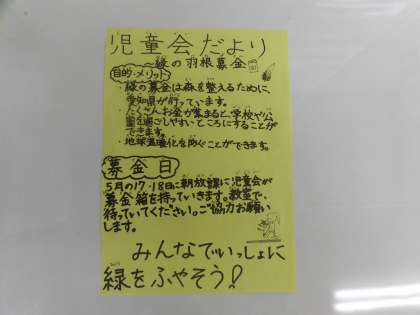 児童会だより
～緑の羽根募金
目的・メリット
・緑の募金は森を整えるために、
愛知県が行っています。
・たくさんお金が集まると、学校や公
園を過ごしやすいところにすることが
できます。
・地球温暖化を防ぐことができます。
募金日
5月の17・18日に朝放課に児童会が
募金箱を持っていきます。教室で、
待っていてください。ご協力お願い
します。
みんなでいっしょに
緑をふやそう!